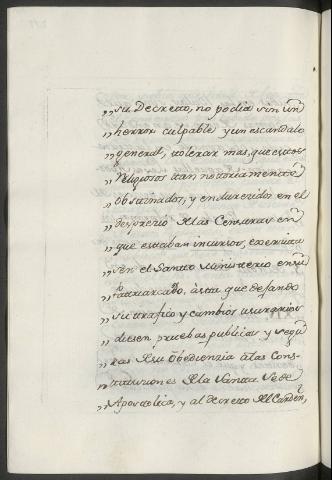 „su Decreto, no podia sin un
„herror culpable y un escandalo
„general, tolerar mas, que estos
„Religiosos tan notariamente
„Obstinados, y endurecidos en el
„desprecio de las Censuras en
„que estaban incursos, exercita
„sen el Santo Ministerio en su
„Patriarcado, àsta que dejando
„su trafico y cambios usurarios
„diesen pruebas publicas y segu
„ras de su Obediencia à las Cons-
„tituciones de la Santa Sede
„Apostolica, y al decreto del Carden,